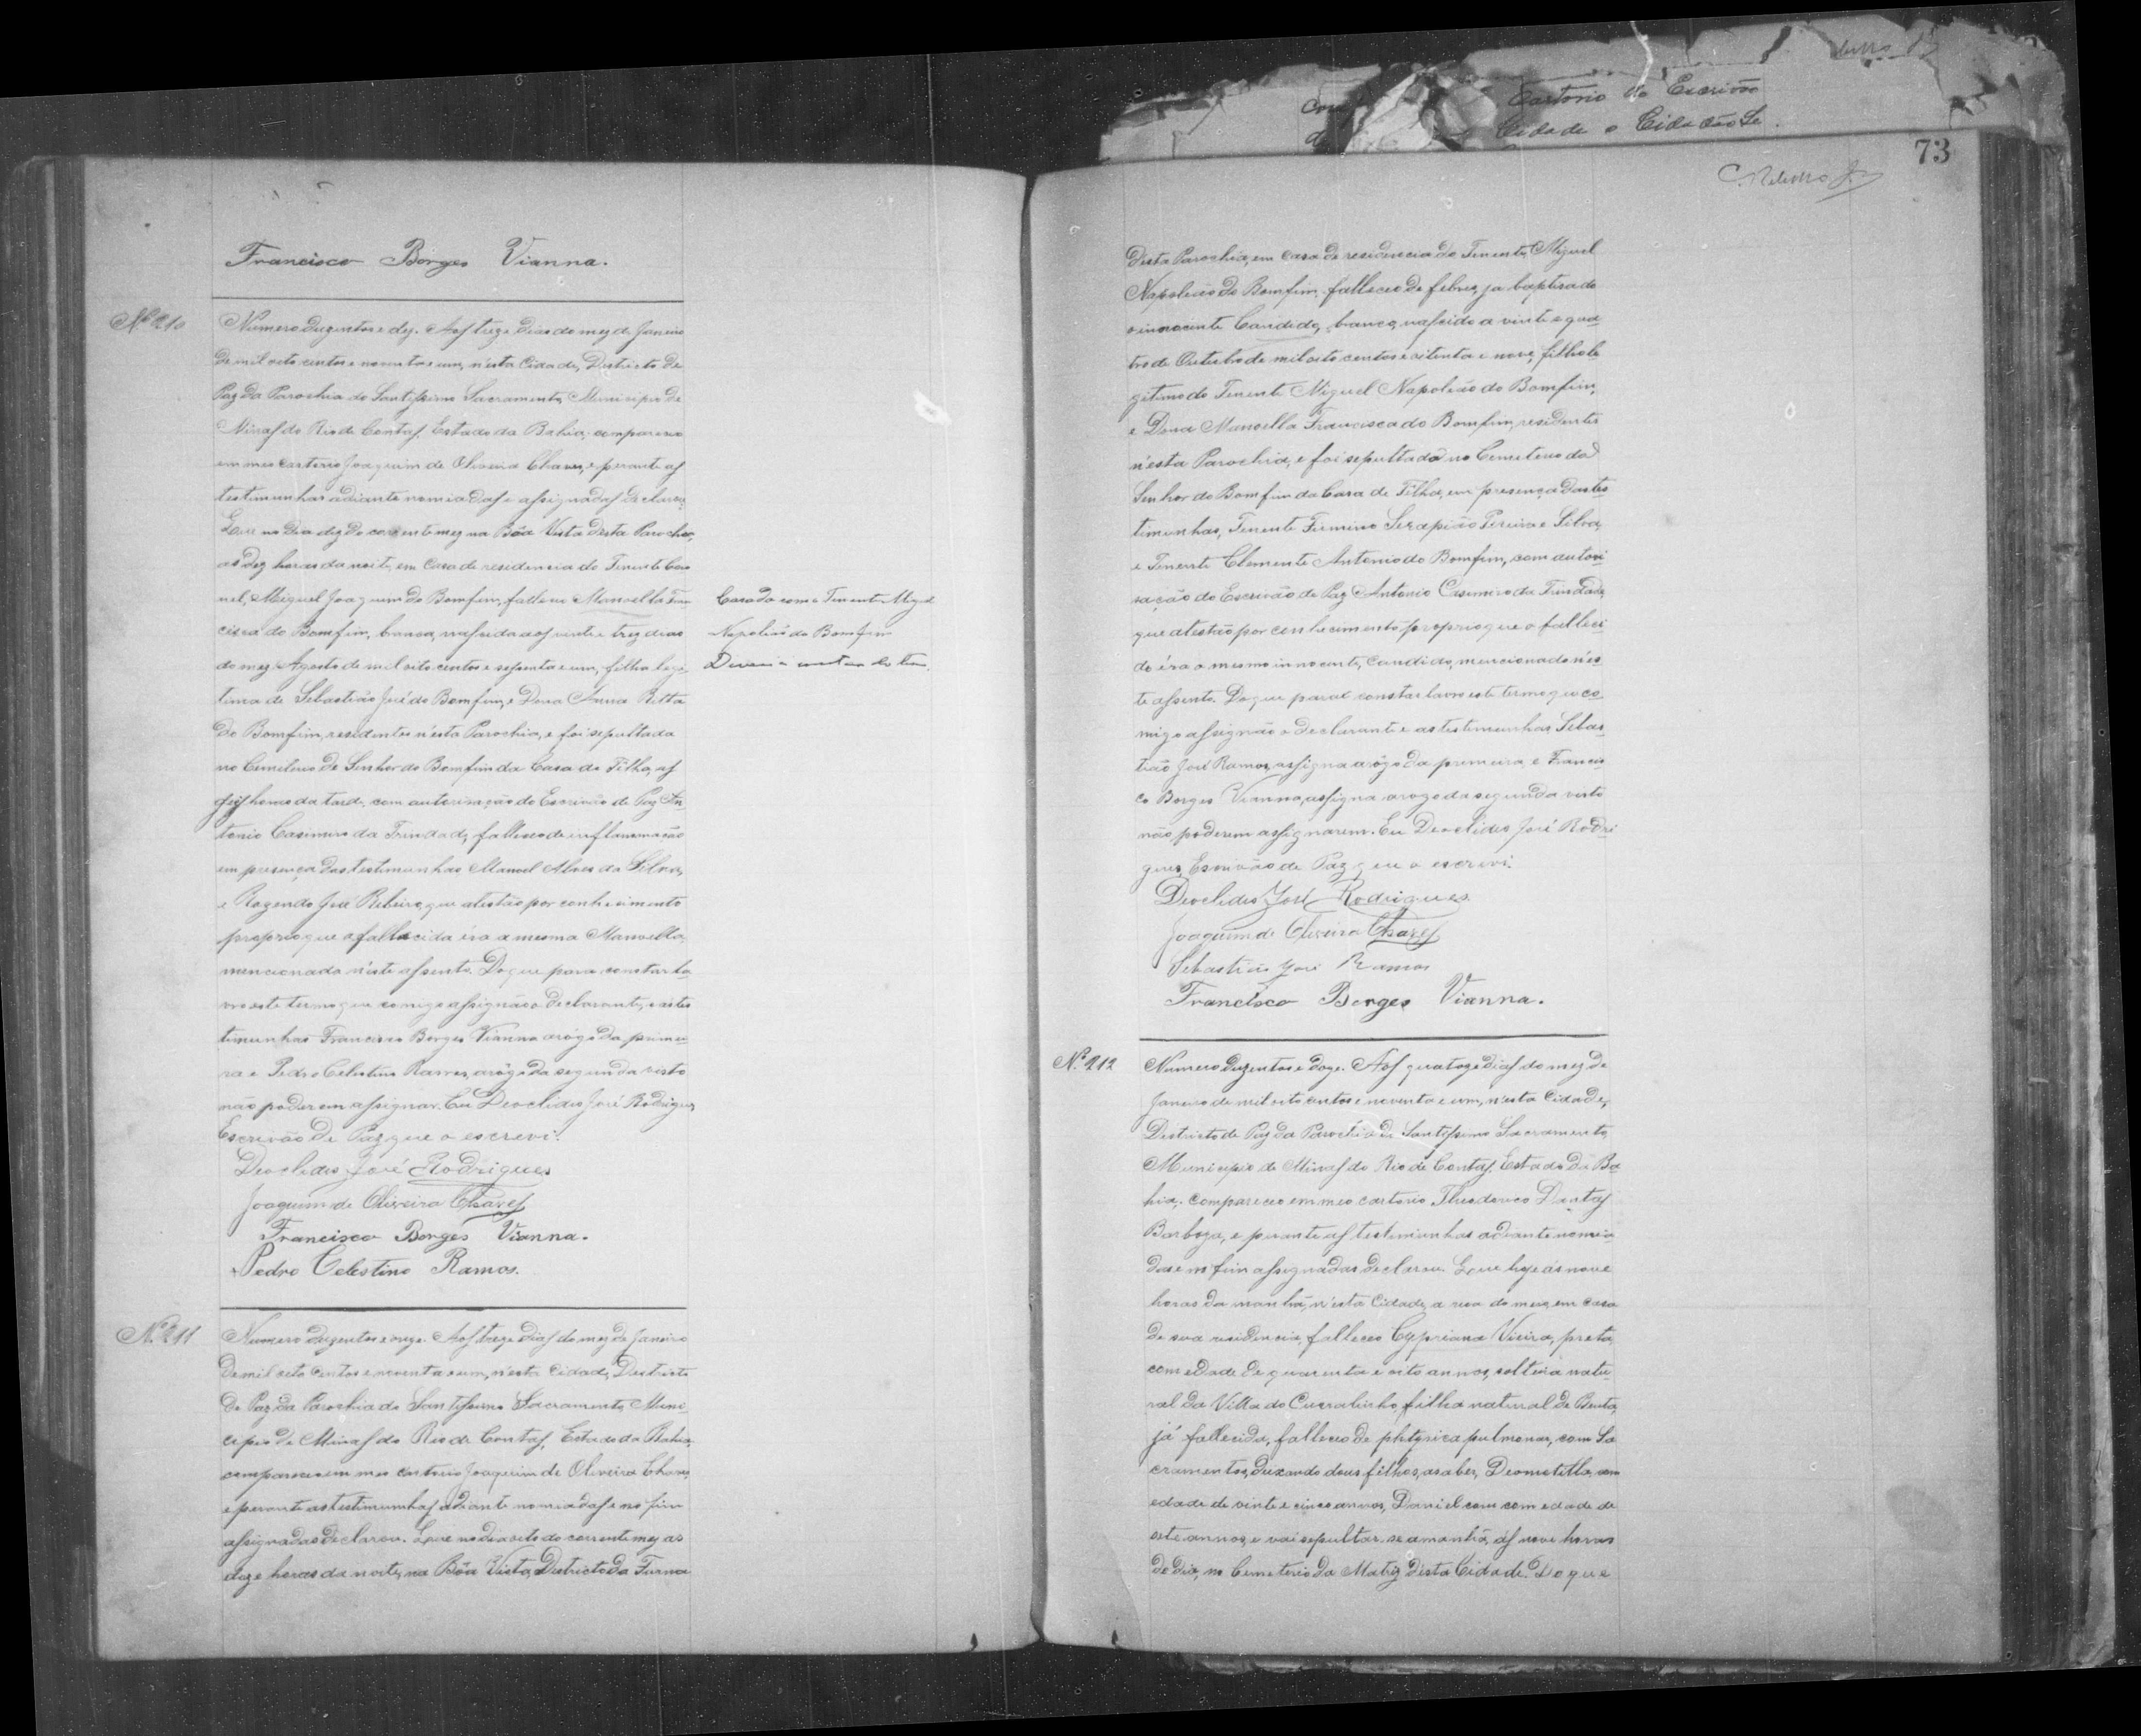 Francisco Borges Vianna.
Nº 210
Numero duzentos e dez. Aos treze dias do mez de Janeiro
de mil oito centos e noventa e um, n'esta Cidade, Districto de
Paz da Parochia do Santissimo Sacramento, Municipio de
Minas do Rio de Contas, Estado da Bahia, compareceo
em meo cartorio Joaquim de Oliveira Chaves, e perante as
testimunhas adiante nomiadas e assignadas declarou:
Que no dia dez do corrente mez na Bôa Vista desta Parochia,
as dez horas da noite, em casa de residencia do Tenente Coro
nel, Miguel Joaquim do Bomfim, falleceo Manoella Fran
cisca do Bomfim, branca, nascida aos vinte e trez dias
do mez Agosto de mil oito centos e sessenta e um, filha legi-
tima de Sebastião José do Bomfim, e Dona Anna Ritta
do Bomfim, residentes n'esta Parochia, e foi sepultada
no Cemiterio do Senhor do Bomfim da Casa de Tilha, as
horas da tarde, com autorisação do Escrivão de Paz An
tonio Casimiro da Trindade, falleceo de inflammação
em presença das testimunhas Manoel Alves da Silva,
e Rozendo José Ribeiro, que atestão por conhecimento
proprio que a fallecida éra a mesma Manoella,
mencionada n'este assento. Do que para constar la
vro este termo que comigo assignão o declarante, e as tes
timunhas Francisco Borges Vianna arôgo da primei
ra e Pedro Celestino Ramos, arôgo da segunda visto
não poderem assignar. Eu Deoclides José Rodrigues,
Escrivão de Paz que o escrevi.
Deoclides José Rodrigues
Joaquim de Oliveira Chaves
Francisco Borges Vianna.
Pedro Celestino Ramos.
Casada com o Tenente Miguel
Napoleão do Bomfim
Nº 211
Numero duzentos e onze. Aos treze dias do mez de Janeiro
de mil oito centos e noventa e um, n'esta Cidade, Districto
de Paz da Parochia do Santissimo Sacramento, Muni-
cipio de Minas do Rio de Contas, Estado da Bahia,
compareceo em meo cartorio Joaquim de Oliveira Chaves,
e perante as testimunhas adiante nomiadas e no fim
assignadas declarou. Que no dia oito do corrente mez as
doze horas da noite, na Bôa Vista, Districto da Furna
Cartorio do Escrivão
Cidade o Cidadão
73
desta Parochia, em casa de residencia do Tenente, Miguel
Napoleão do Bomfim, falleceo de febres, ja baptisado
o innocente Candido, branco, nascido a vinte e qua
tro de Outubro de mil oito centos e oitenta e nove, filho le
gitimo do Tenente Miguel Napoleão do Bomfim,
e Dona Manoella Francisca do Bomfim, residentes
n'esta Parochia, e foi sepultado no Cemiterio do
Senhor do Bomfim da Casa de Tilha, em presença das tes
timunhas, Tenente Firmino Serapião Pereira e Silva,
e Tenente Clemente Antonio do Bomfim, com autori
sação do Escrivão de Paz Antonio Casimiro da Trindade,
que atestão por conhecimento proprio que o falleci
do éra o mesmo innocente, Candido, mencionado n'es
te assento. Do que para constar lavro este termo que co
migo assignão o declarante e as testimunhas Sebas
tião José Ramos, assigna arôgo da primeira, e Francis
co Borges Vianna, assigna arogo da segunda visto
não poderem assignarem. Eu Deoclides José Rodri
gues, Escrivão de Paz que o escrevi.
Deoclides José Rodrigues
Joaquim de Oliveira Chaves
Sebastião José Ramos
Francisco Borges Vianna.
Nº 212
Numero duzentos e doze. Aos quatoze dias do mez de
Janeiro de mil oito centos e noventa e um, n'esta Cidade,
Districto de Paz da Parochia do Santissimo Sacramento,
Municipio de Minas do Rio de Contas, Estado da Ba
hia, compareceo em meo cartorio Theodorico Dantas
Barboza, e perante as testimunhas adiante nomia
das e no fim assignadas declarou. Que hoje ás nove
horas da manhã, n'esta Cidade, a rua do meio, em casa
de sua residencia, falleceo Cypriana Vieira, preta,
com edade de quarenta e oito annos, solteira natu
ral da Villa do Curralinho, filha natural de Benta,
já fallecida, falleceo de phtysica pulmonar, com Sa
cramentos, deixando dous filhos, a saber, Deometilla, com
edade de vinte e cinco annos, Daniel com com edade de
sete annos, e vai sepultar-se amanhã, as nove horas
do dia, no Cemeterio da Matriz desta Cidade. Do que